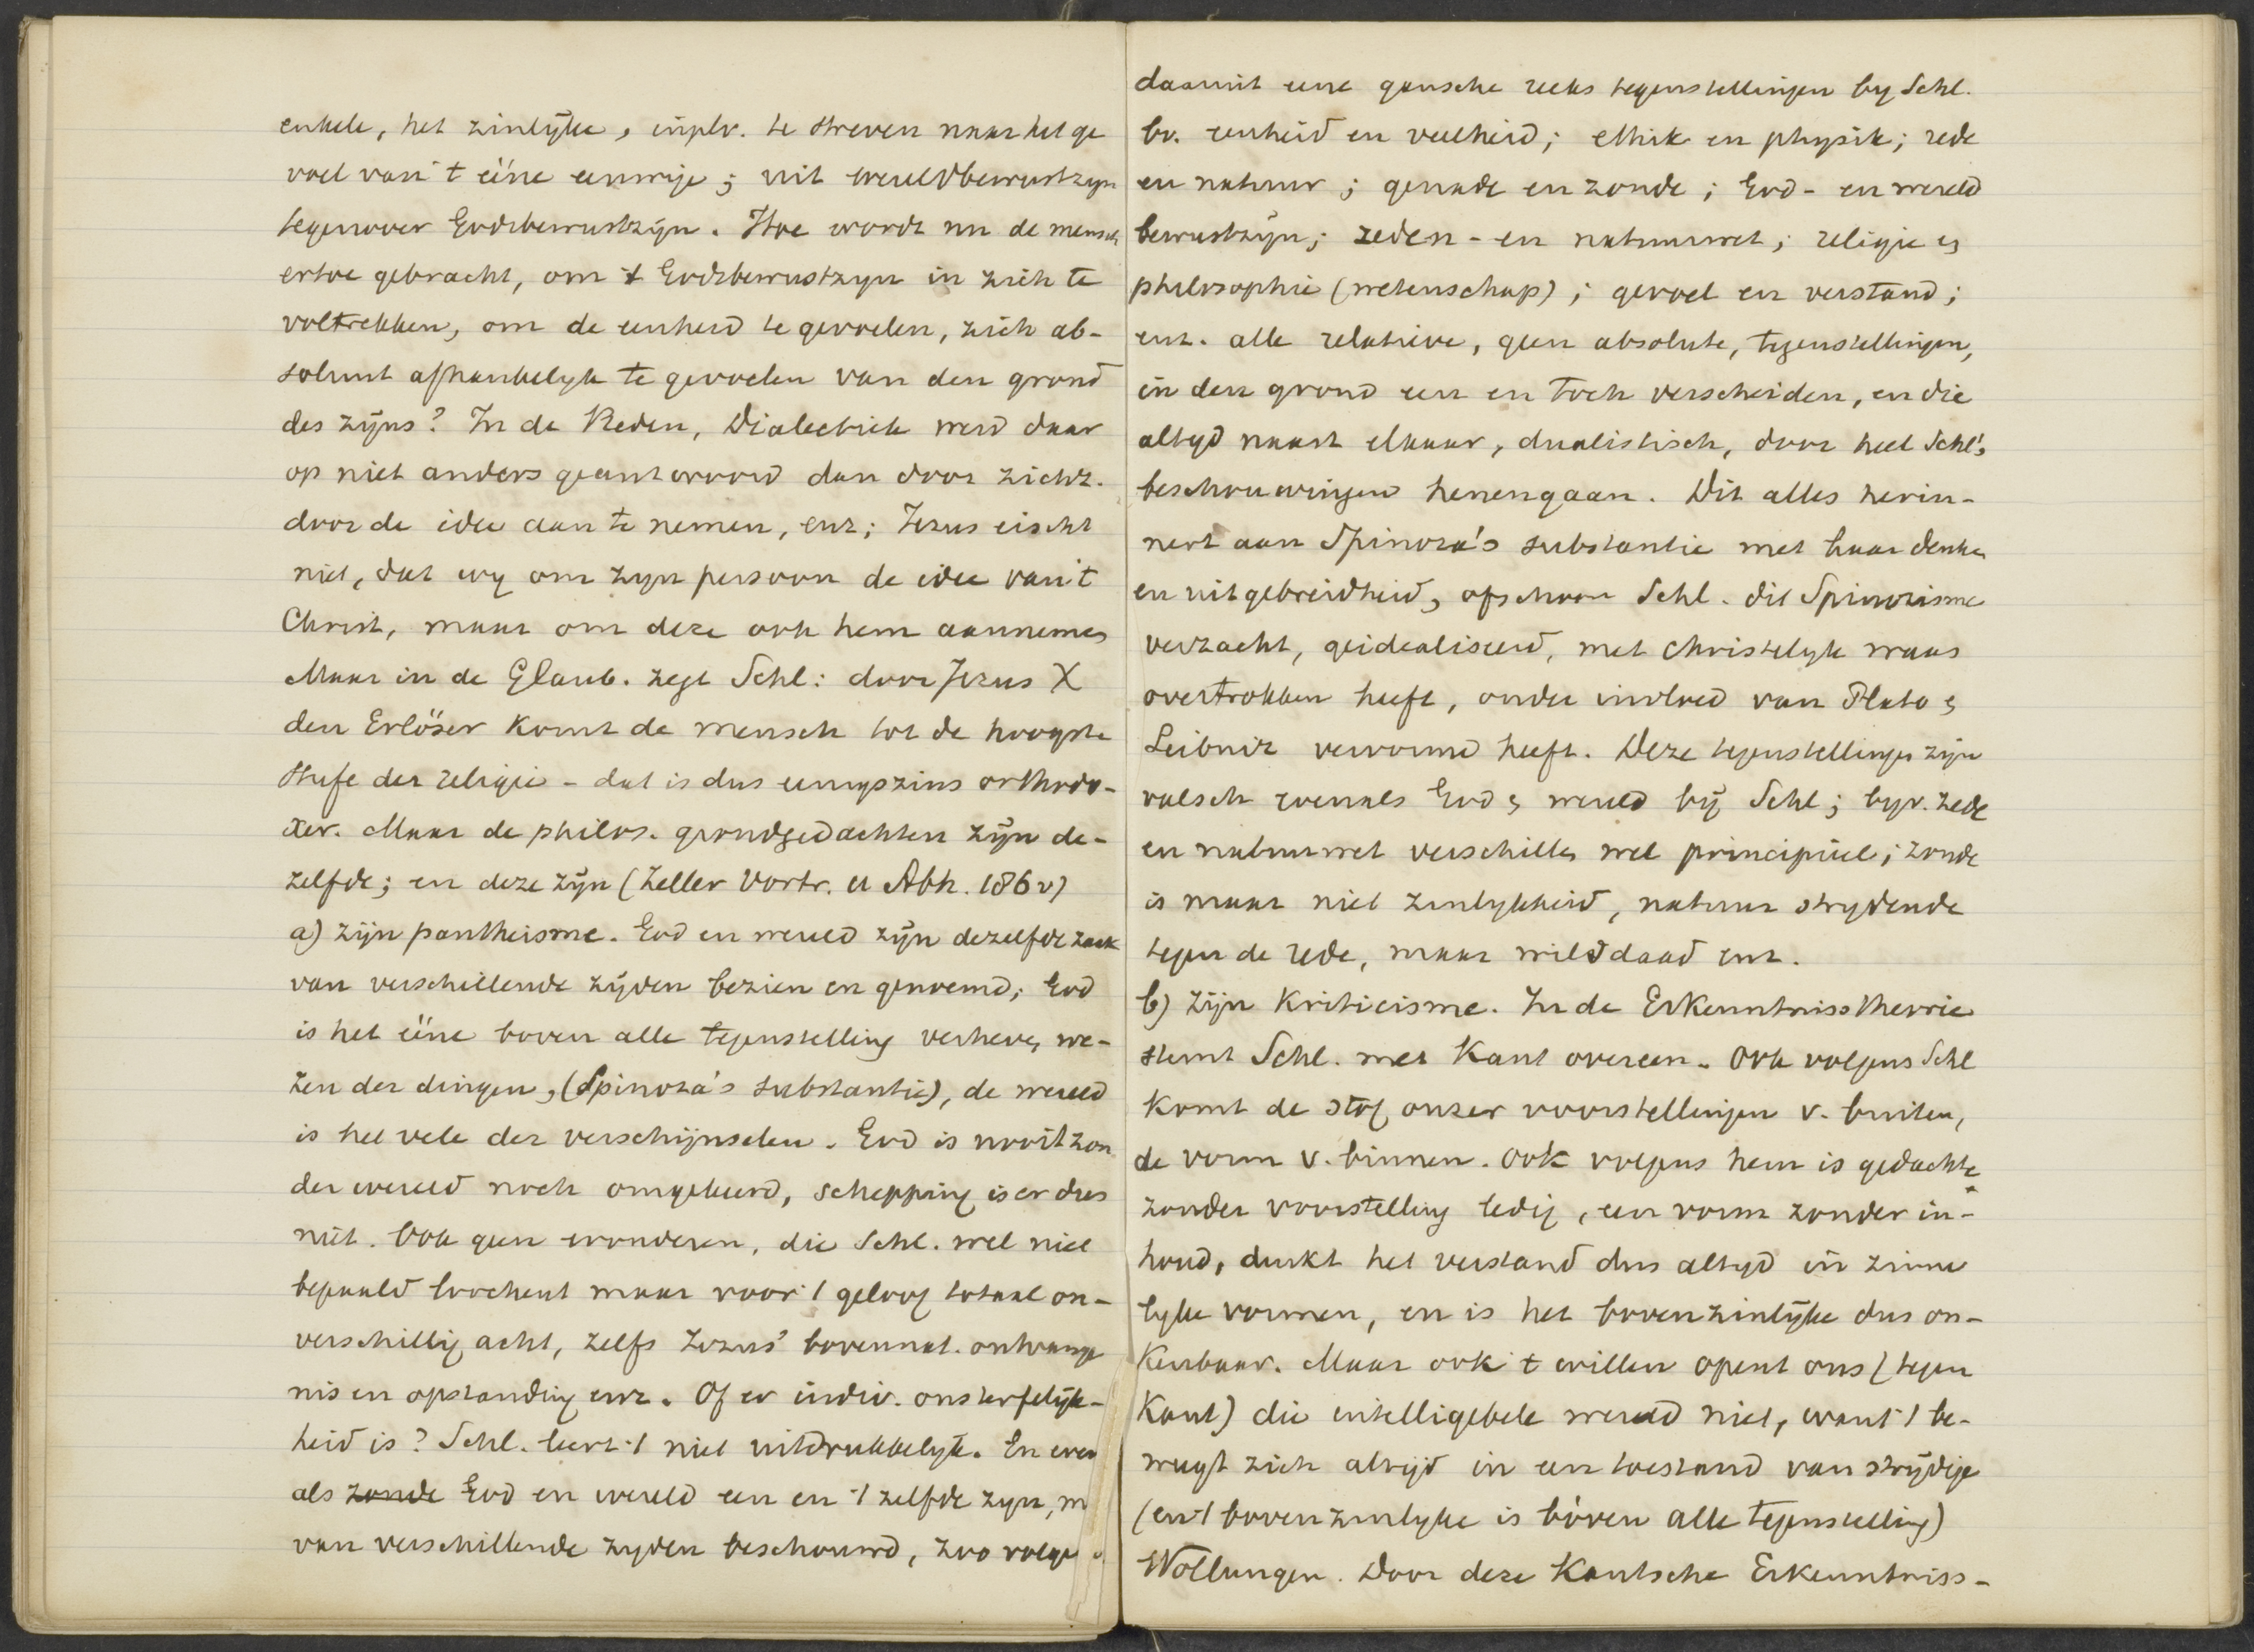 enkele, het zinlijke, in plv. te streven naar het ge
voel van 't ééne eeuwige; uit wereldbewustzyn
tegenover Godsbewustzijn. Hoe wordt nu de mensch
ertoe gebracht, om 't Godsbewustzyn in zich te
voltrekken, om de eenheid te gevoelen, zich ab-
soluut afhankelyk te gevoelen van den grond
des zijns? In de Reden, Dialectick werd daar
op niet anders geantwoord dan door zichz.
door de idee aan te nemen, enz; Jezus eischt
niet, dat wy om zyn persoon de idee van 't
Christ, maar om deze ook hem aannemen
Maar in de Glaub. zegt Schl: door Jezus X
den Erlöser komt de mensch tot de hoogste
Stufe der religie - dat is dus eenigszins orthodo-
xer. Maar de philos. grondgedachten zijn de-
zelfde; en deze zijn (Zeller Vortr. u Abh. 186 v)
a) zijn pantheisme. God en wereld zijn dezelfde zaak
van verschillende zijden bezien en genoemd; God
is het ééne boven alle tegenstelling verheven we-
zen der dingen, (Spinoza's substantie), de wereld
is het vele der verschijnselen. God is nooit zon
der wereld noch omgekeerd, schepping is er dus
niet. Ook geen wonderen, die Schl. wel niet
bepaald loochent maar voor 't geloof totaal on-
verschillig acht, zelfs Jezus' bovennat. ontvange
nis en opstanding enz. Of er indiv. onsterfelijk-
heid is? Schl. leert 't niet uitdrukkelyk. En even
als zonde God en wereld een en 't zelfde zyn, m
van verschillende zyden beschouwd, zoo volgt
daaruit eene gansche reeks tegenstellingen by Schl.
bv. eenheid en veelheid; ethik en physik; rede
en natuur; genade en zonde; God- en wereld
bewustzijn; zeden- en natuurwet; religie en
philosophie (wetenschap); gevoel en verstand;
enz. alle relatieve, geen absolute, tegenstellingen,
in den grond een en toch verscheiden, en die
altyd naast elkaar, dualistisch, door heel Schl's
beschouwingen henengaan. Dit alles herin-
nert aan Spinoza's substantie met haar denken
en uitgebreidheid, ofschoon Schl. dit Spinozisme
verzacht, geidealiseerd, met christelyk waas
overtrokken heeft, onder invloed van Plato en
Leibniz vervormd heeft. Deze tegenstellingen zijn
valsch evenals God en wereld bij Schl; byv. zede
en natuurwet verschillen wel principieel; zonde
is maar niet zinlykheid, natuur strydende
tegen de rede, maar wilsdaad enz.
b) Zijn Kriticisme. In de Erkenntnisstheorie
stemt Schl. met Kant overeen. Ook volgens Schl
komt de stof onzer voorstellingen v. buiten,
de vorm v. binnen. Ook volgens hem is gedachte
zonder voorstelling ledig, een vorm zonder in-
houd, denkt het verstand dus altyd in zinne
lyke vormen, en is het bovenzinlijke dus on-
kenbaar. Maar ook 't willen opent ons (tegen
Kant) die intelligebele wereld niet, want 't be-
weegt zich altijd in een toestand van strijdige
(en 't bovenzinlyke is bóven alle tegenstelling)
Wollungen. Door deze Kantsche Erkenntniss-